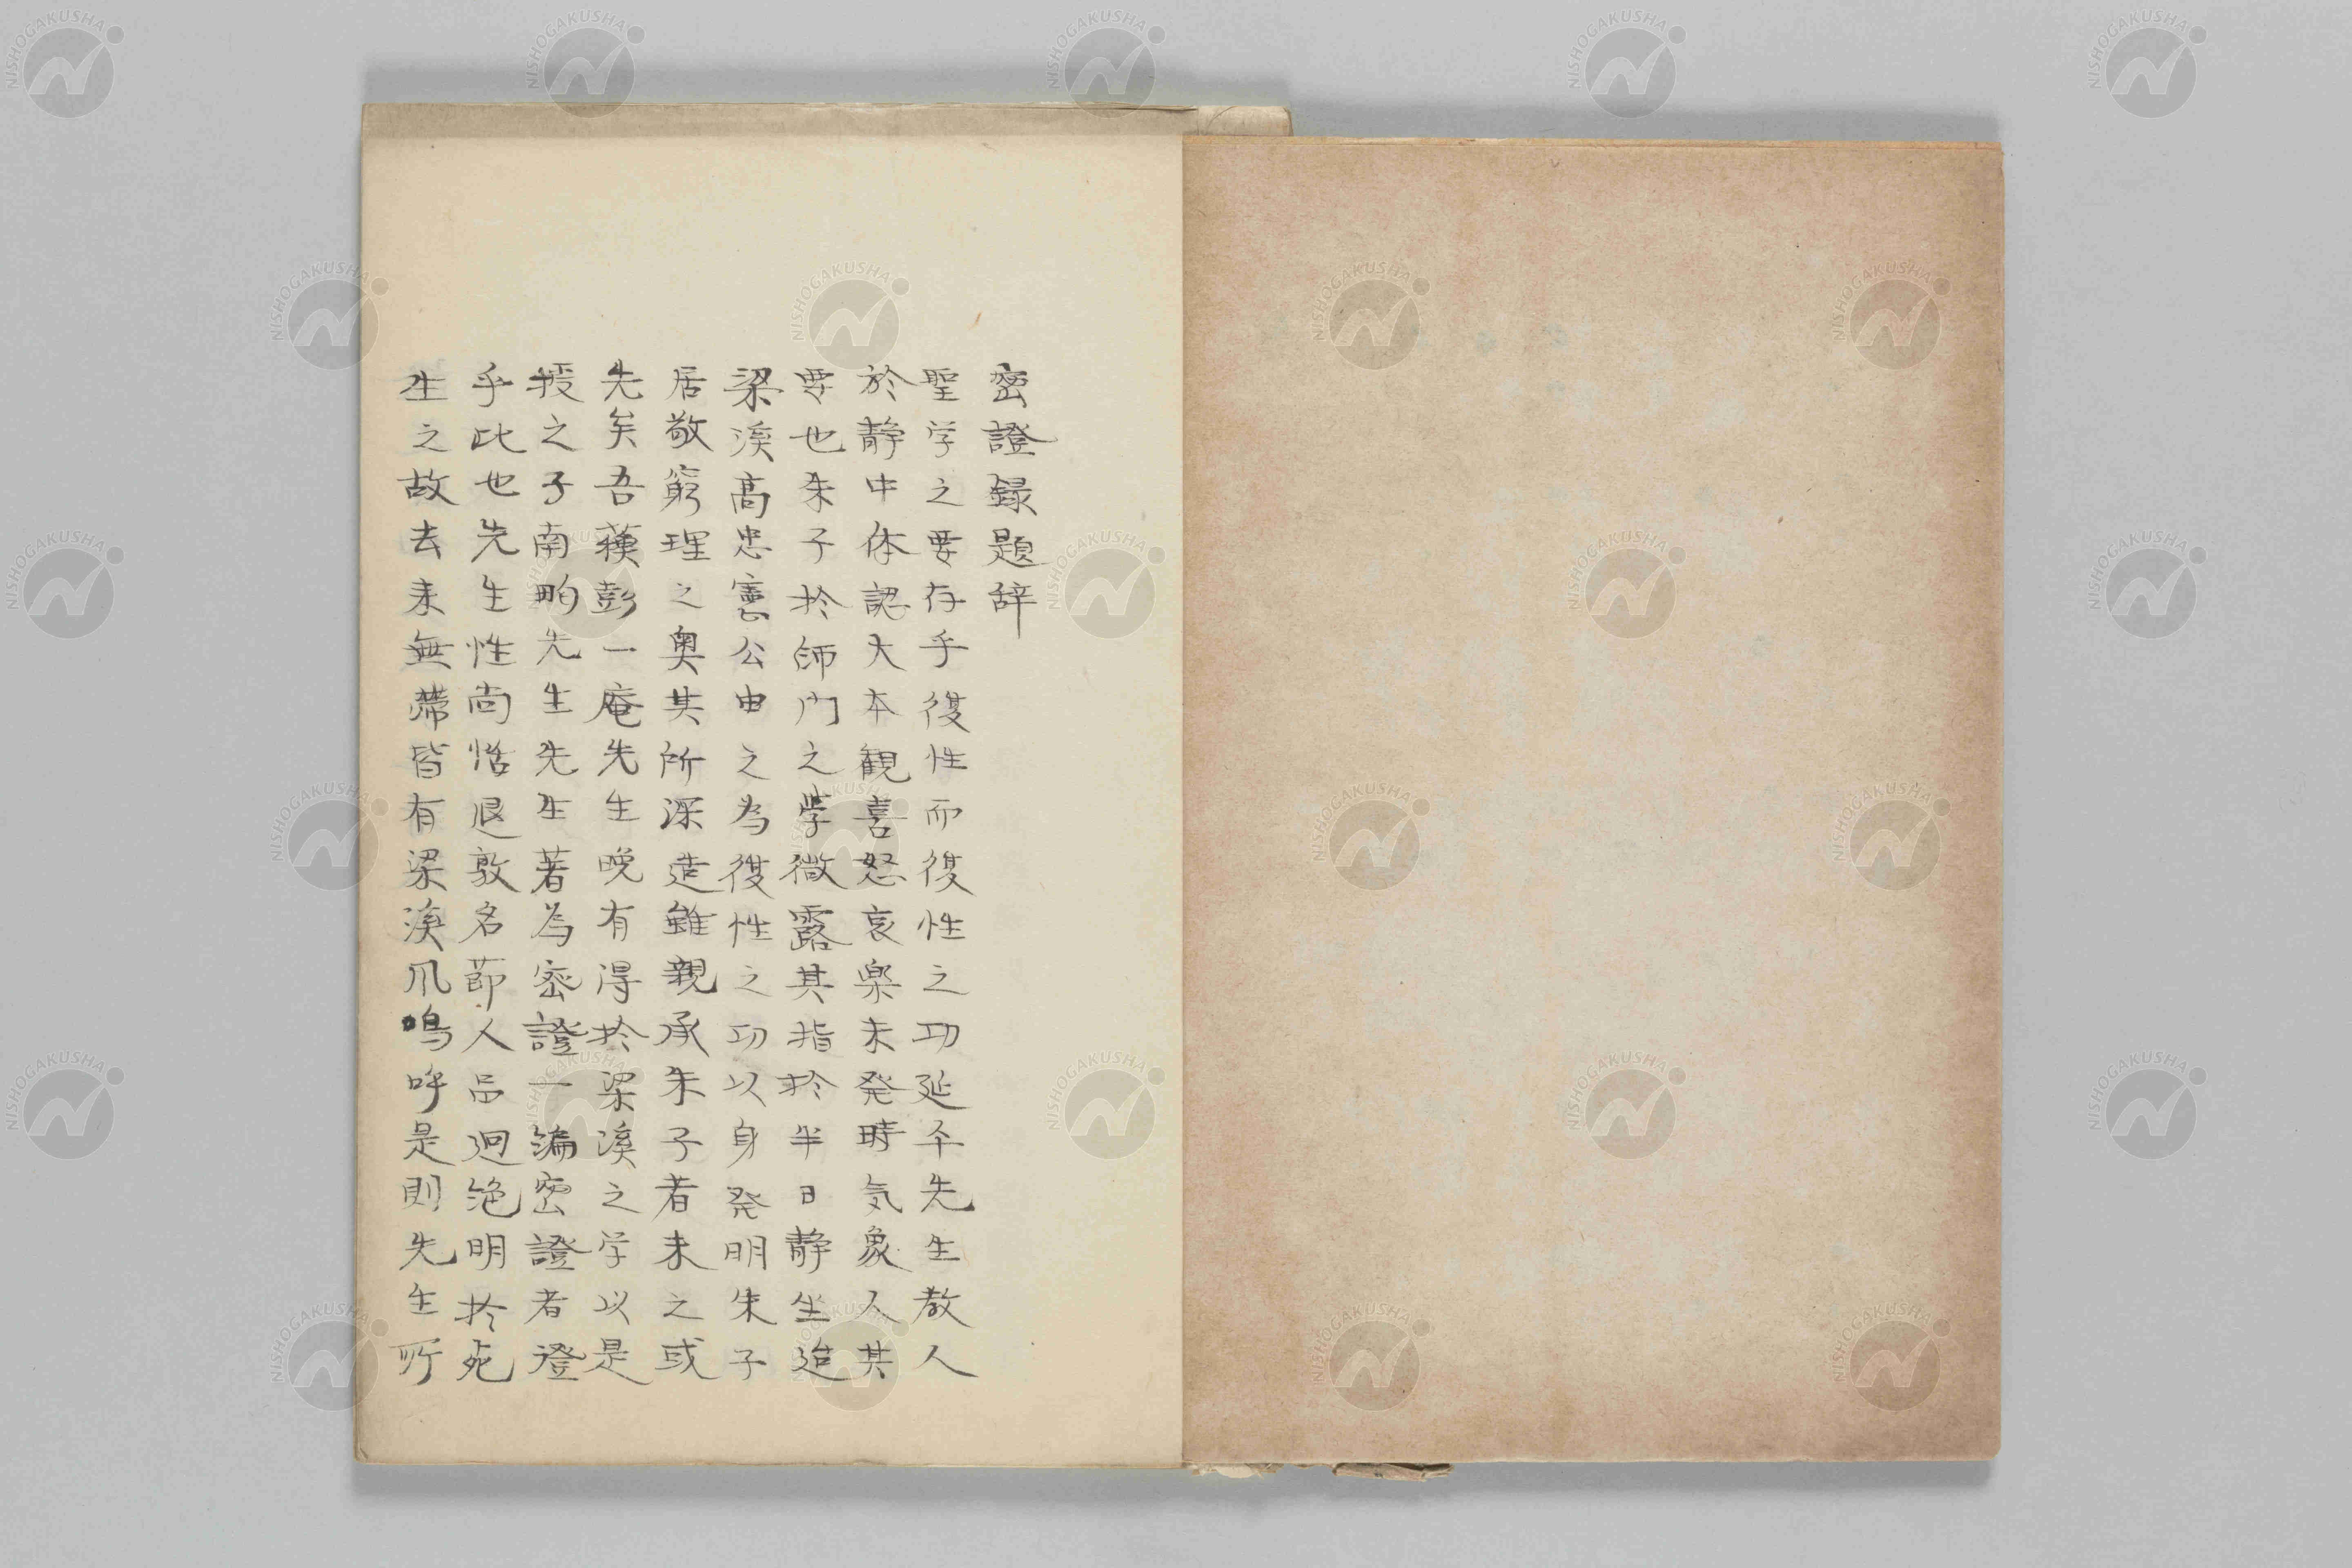 密證録題辞
聖学之要存乎復性而復性之功延平先生教人
於静中体認大本観喜怒哀楽未発時気象人其
要也朱子於師門之学微露其指於半日静坐迨
梁溪髙忠憲公由之為復性之功以身発明朱子
居敬窮理之奥其所深造雖親承朱子者未之或
先矣吾藐彭一庵先生晩有得於梁溪之学以是
授之子南畇先生先生著為密證一編密證者證
乎此也先生性尚恬退敦名節人品迥絶明於死
生之故去来無滞皆有梁溪風嗚呼是則先生所
NISHOGAKUSHA